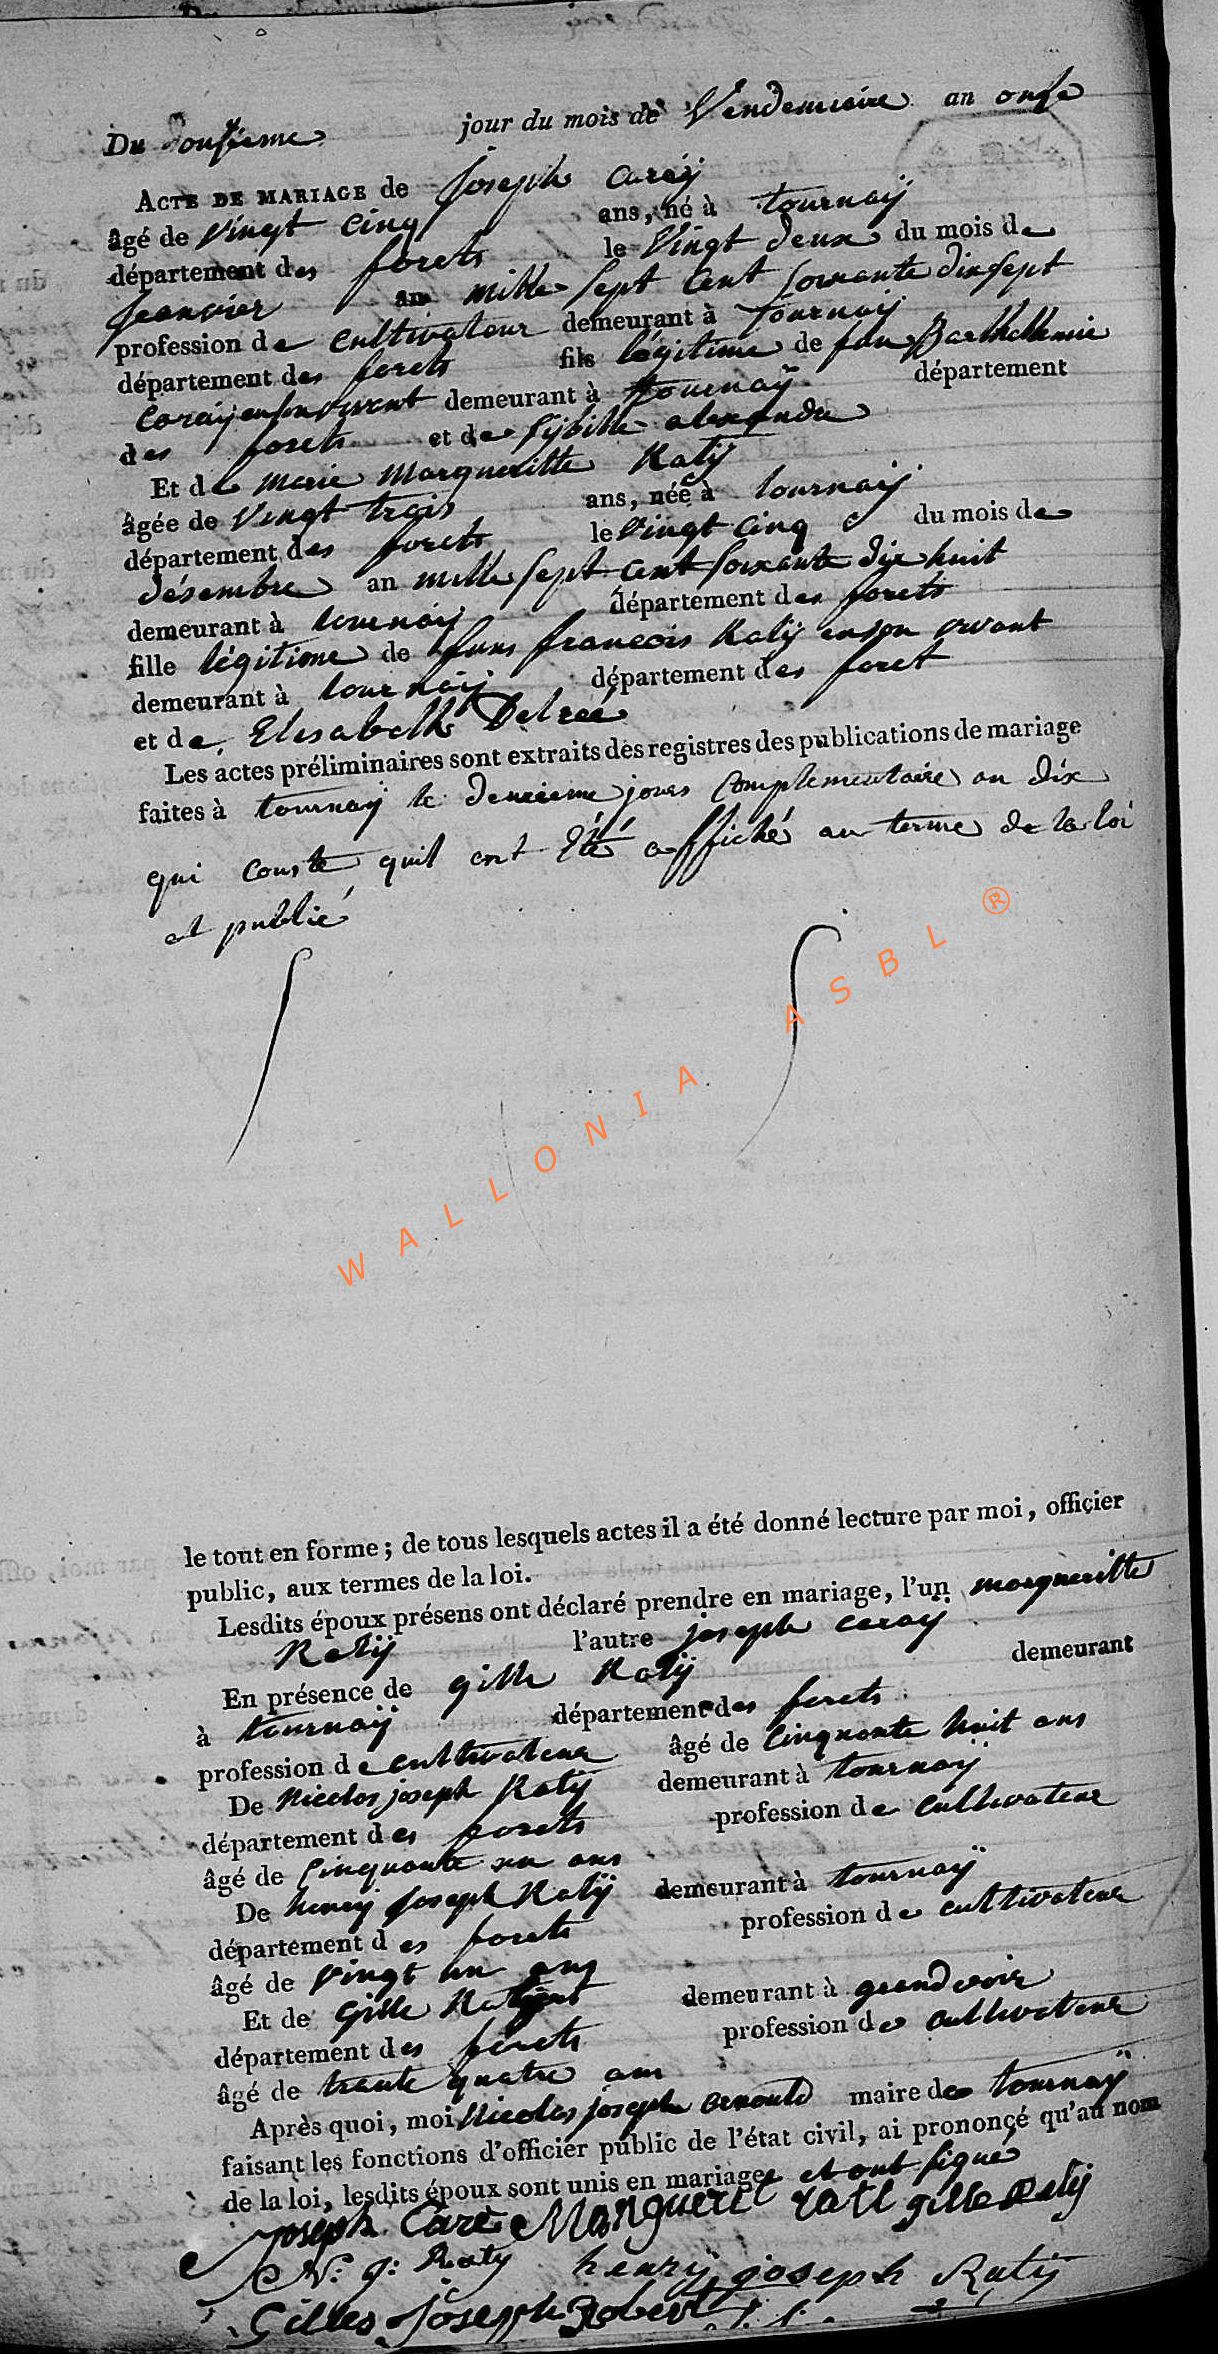 Du onsieme jour du mois de Vendemiaire an onse
ACTE DE MARIAGE de Joseph Caraÿ
âgé de Vingt cinq ans, né à tournaÿ
département des forets le Vingt deux du mois de
Jeanvier an mille sept cent soixante dix sept
profession de cultivateur demeurant à tournaÿ
département des forets fils légitime de feu Barthellemie
Caraÿ en son vivent demeurant à tournaÿ département
des forets et de Sÿbille alexandre
Et de marie Margueritte Ratÿ
âgée de Vingt trois ans, née à tournaÿ
département des forets le Vingt cinq du mois de
désembre an mille sept cent soixante dix huit
demeurant à tournaÿ département des forets
fille légitime de feux francois Ratÿ en son vivant
demeurant à tournaÿ département des foret
et de Elisabelle Delrée
Les actes préliminaires sont extraits des registres des publications de mariage
faites à tournaÿ le deuxieme jours complementaire an dix
qui conste quil ont Eté affiché au terme de la loi
et publié
WALLONIA ASBL ®
le tout en forme; de tous lesquels actes il a été donné lecture par moi, officier
public, aux termes de la loi.
Lesdits époux présens ont déclaré prendre en mariage, l'un margueritte
Ratÿ l'autre joseph caraÿ
En présence de gille Ratÿ demeurant
à tournaÿ département des forets
profession de cultivateur âgé de cinquante huit ans
De Nicolas joseph Ratÿ demeurant à tournaÿ
département des forets profession de cultivateur
âgé de cinquante un ans
De henrÿ Joseph Ratÿ demeurant à tournaÿ
département des forets profession de cultivateur
âgé de Vingt un ans
Et de Gille demeurant à grandvoir
département des forets profession de cultivateur
âgé de trante quatre ans
Après quoi, moi Nicolas joseph arnould maire de tournaÿ
faisant les fonctions d'officier public de l'état civil, ai prononcé qu'au nom
de la loi, lesdits époux sont unis en mariage et ont signé
Joseph Caré Marguerit rati gille Ratÿ
N: J: Raty henrÿ joseph Ratÿ
Gilles Joseph Robert